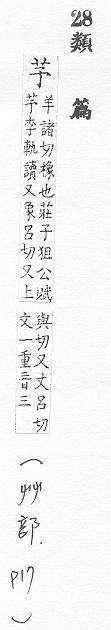 28類
篇
芧
羊諸切橡也莊子狙公賦
芧李軌讀又象呂切又上
與切又丈呂切
文一重音三
(艸部. P17)